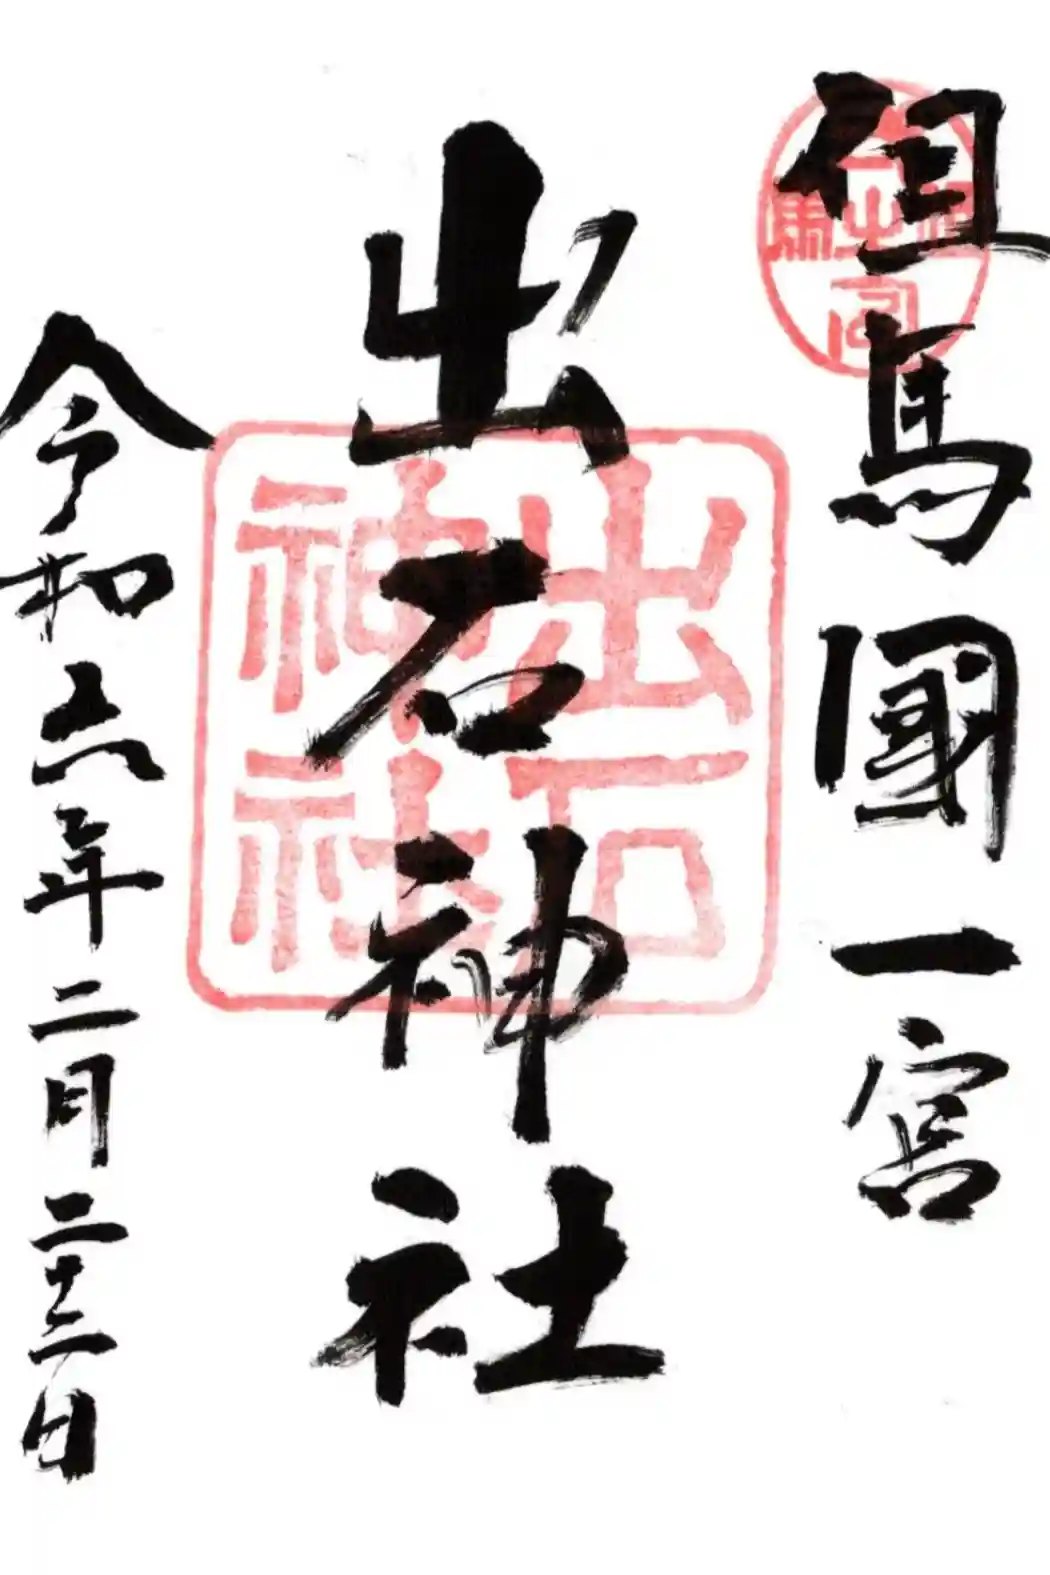 但馬國一宮
出石神社
令和六年二月二十二日
出石
神社